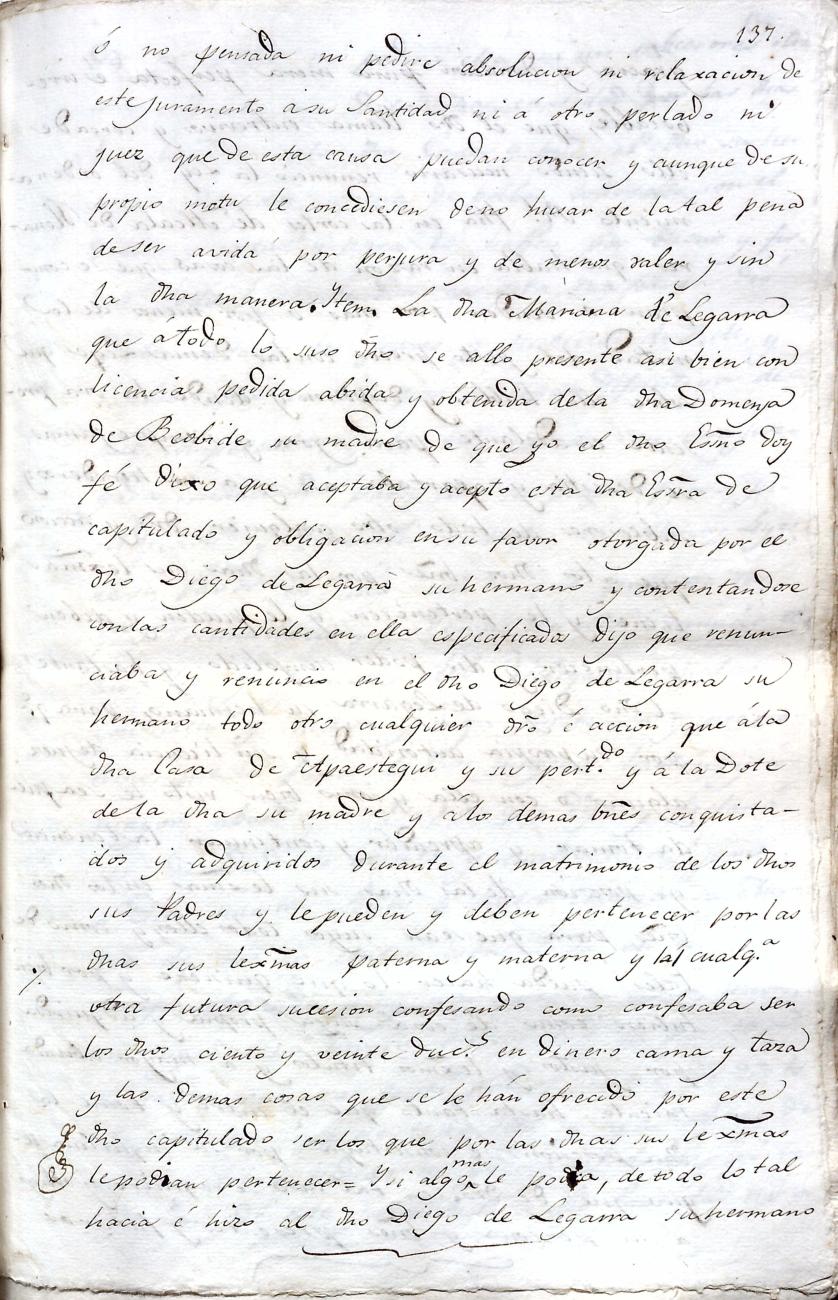 137.
ó no pensada ni pedire absolucion ni relaxacion de
este juramento a su Santidad ni á otro perlado ni
juez que de esta causa puedan conocer y aunque de su
propio motu le concediesen de no husar de la tal pena
de ser avida por perjura y de menos valer y sin
la dha manera. Ytem. La dha Mariana de Legarra
que á todo lo suso dho se allo presente asi bien con
licencia pedida abida y obtenida de la dha Domenja
de Beobide su madre de que yo el dho Essno doy
fé dixo que aceptaba y acepto esta dha Essra de
capitulado y obligacion en su favor otorgada por el
dho Diego de Legarra su hermano y contentandose
con las cantidades en ella especificadas dijo que renun-
ciaba y renuncio en el dho Diego de Legarra su
hermano todo otro cualquier dro é accion que á la
dha Casa de Apaestegui y su pert.do y á la Dote
de la dha su madre y á los demas bnes conquista-
dos y adquiridos durante el matrimonio de los dhos
sus Padres y le pueden y deben pertenecer por las
dhas sus lexmas paterna y materna y cualq.a
otra futura sucesion confesando como confesaba ser
los dhos ciento y veinte duc.s en dinero cama y taza
y las demas cosas que se le hán ofrecido por este
dho capitulado ser los que por las dhas sus lexmas
le podian pertenecer= Y si algo mas le podia, de todo lo tal
hacia é hizo al dho Diego de Legarra su hermano